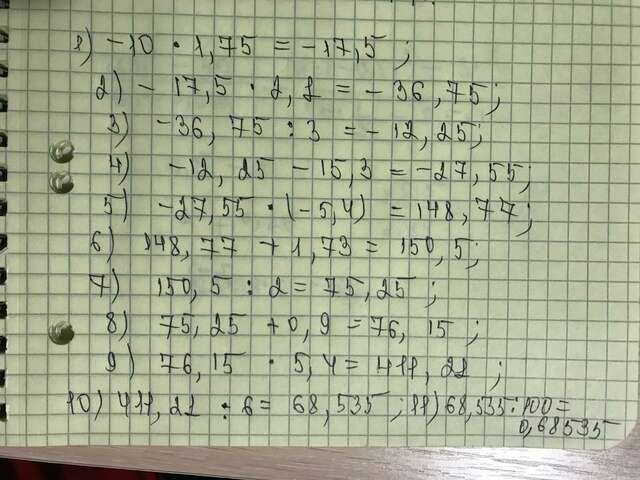 1) -10 · 1,75 = -17,5 ;
2) - 17,5 · 2,1 = - 36,75;
3) -36,75 : 3 = - 12,25;
4) -12,25 - 15,3 = -27,55;
5) -27,55 · (-5,4) = 148,77;
6) 148,77 + 1,73 = 150,5;
7) 150,5 : 2 = 75,25 ;
8) 75,25 + 0,9 = 76,15 ;
9) 76,15 · 5,4 = 411,21 ;
10) 411,21 : 6 = 68,535 ; 11) 68,535 : 100 =
0,68535